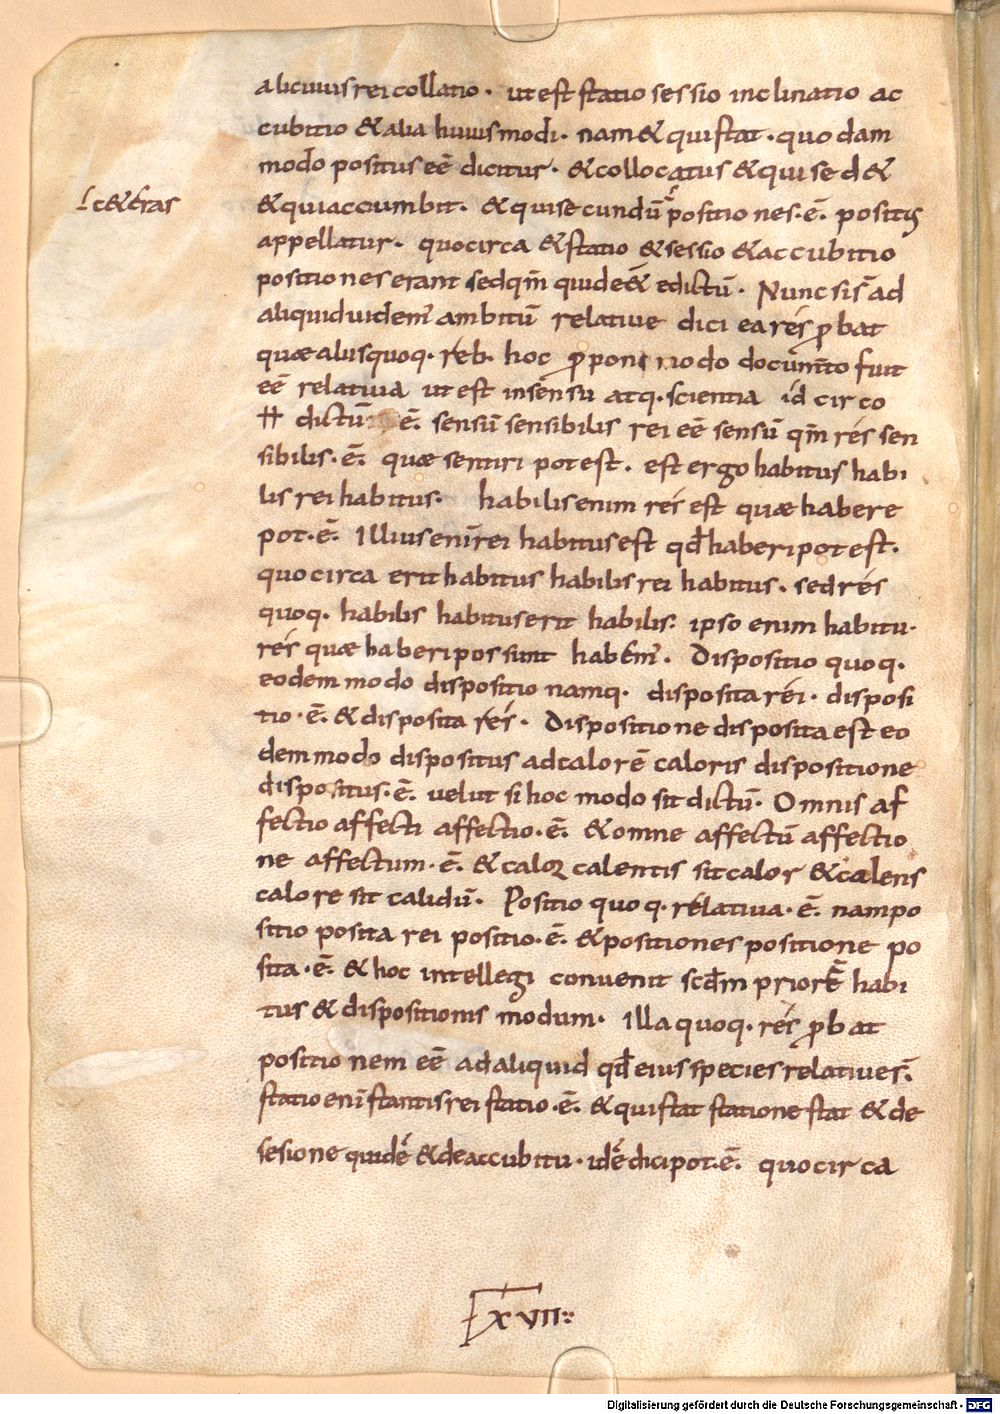 alicuius rei collatio. ut est statio sessio inclinatio ac
cubitio & alia huiusmodi. nam & qui stat. quodam
modo positus eē dicitur. & collocatus & qui sed&
c&eras
& qui accumbit. & qui secundū positiones. ē. positis
appellatur. quocirca & statio & sessio & accubitio
positiones erant sed qm̄ quidē & edictū. Nunc sis ad
aliquid uidem̄ ambitū relatiue dici ea rés ꝓbat
quæ aliis quoq. reb. hoc ꝓponi modo documto fuit
eē relatiua ut est in sensu atq. scientia idcirco
dictū ē. sensū sensibilis rei eē sensū qm̄ rés sen
sibilis. ē. quæ sentiri potest. est ergo habitus habi
lis rei habitus. habilis enim rés est quæ habere
pot. ē. Illius enī rei habitus est qđ haberi potest.
quocirca erit habitus habilis rei habitus. sed rés
quoq. habilis habitus erit habilis. ipso enim habitu.
rés quæ haberi possunt habem̄. Dispositio quoq.
eodem modo dispositio namq. disposita réi. disposi
tio. ē. & disposita rés. Dispositione disposita est eo
dem modo dispositus ad calorē caloris dispositione
dispositus. ē. uelut si hoc modo sit dictū. Omnis af
fectio affecti affectio. ē. & omne affectū affectio
ne affectum. ē. & calor calentis sit calor & calens
calore sit calidū. Positio quoq. rélatiua. ē. nam po
sitio posita rei positio. ē. & positiones positione po
sita. ē. & hoc intellegi conuenit scđm priorē habi
tus & dispositionis modum. Illa quoq. rés ꝓbat
positionem eē ad aliquid qđ eius species relatiue s̄.
statio enī stantis rei statio. ē. & qui stat statione stat & de
sesione quidē & de accubitu. idē dici pot. ē. quocirca
XVII
Digitalisierung gefördert durch die Deutsche Forschungsgemeinschaft - DFG